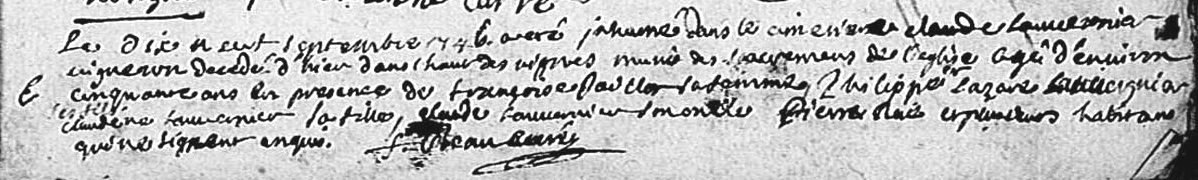 Le dix neuf septembre 1746 a eté inhumé dans le cimetiere claude Lauvernia
vigneron decedé d'hier dans chaut des vignes munie des sacremens de l'eglise agé d'environ
cinquante ans en presence de françoise sa femme, Philippe Lazare
claudene Lauvernier sa fille, claude Lauvernier Simon Pierre et plusieurs habitans
qui ne signent enquis.